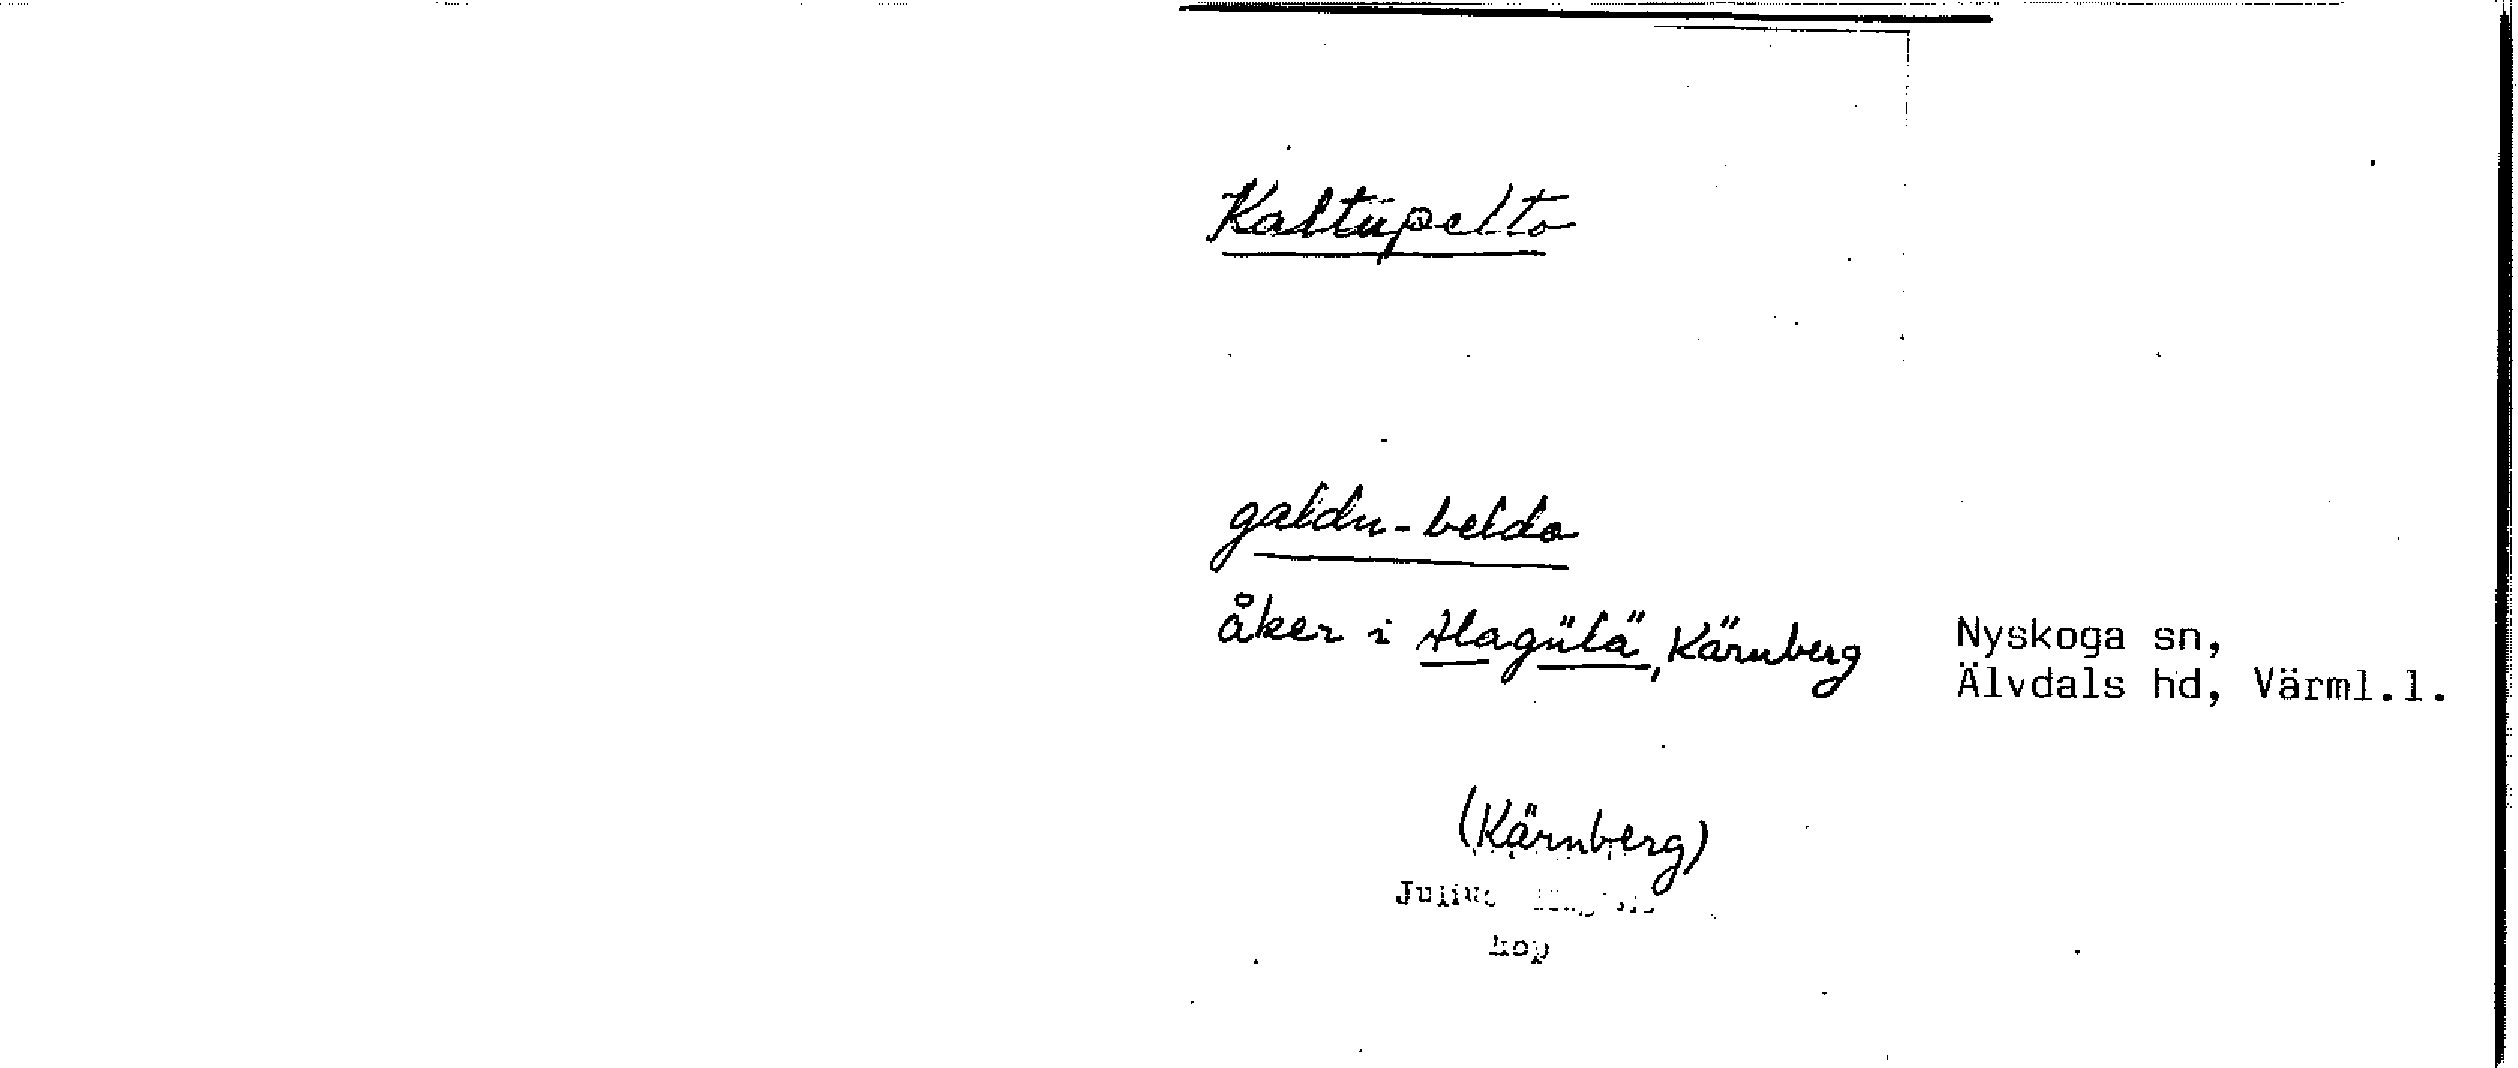 Kaltupelto
galdu-beldo
åker i Alagülä, Kärnberg
Nyskoga sn,
Älvdals hd, Värml.l.
(Kärnberg)
Julius
kop